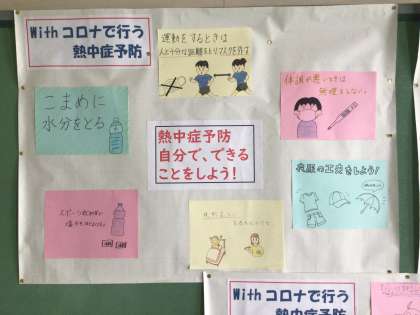 With コロナで行う
熱中症予防
運動をするときは
人と十分な距離をとりマスクを外す
体調が悪いときは
無理をしない。
こまめに
水分をとる
熱中症予防
自分で、できる
ことをしよう!
衣服の工夫をしよう!
With コロナで行う
熱中症予防